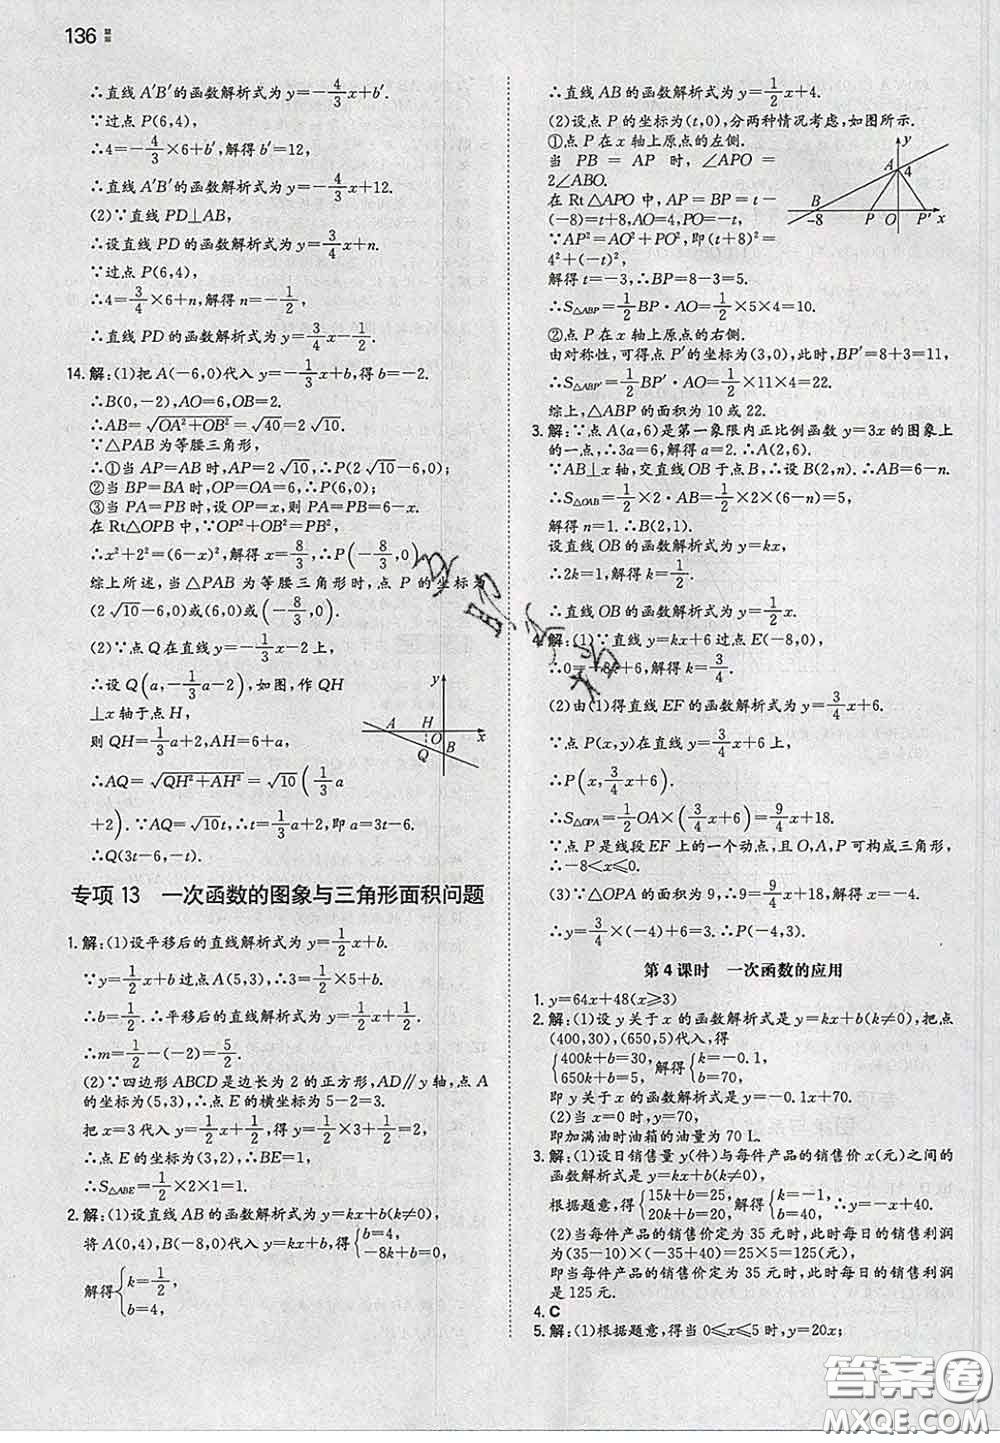 136
∴直线 A'B'的函数解析式为 y=-4/3x+b'.
∵过点 P(6,4),
∴4=-4/3×6+b',解得 b'=12,
∴直线 A'B'的函数解析式为 y=-4/3x+12.
(2)∵直线 PD⊥AB,
∴设直线 PD 的函数解析式为 y=3/4x+n.
∵过点 P(6,4),
∴4=3/4×6+n,解得 n=-1/2,
∴直线 PD 的函数解析式为 y=3/4x-1/2.
14.解:(1)把 A(-6,0)代入 y=-1/3x+b,得 b=-2.
∴B(0,-2),AO=6,OB=2.
∴AB=√(OA²+OB²)=√40=2√10.
∵△PAB 为等腰三角形,
∴①当 AP=AB 时,AP=2√10,∴P(2√10-6,0);
②当 BP=BA 时,OP=OA=6,∴P(6,0);
③当 PA=PB 时,设 OP=x,则 PA=PB=6-x.
在 Rt△OPB 中,∵OP²+OB²=PB²,
∴x²+2²=(6-x)²,解得 x=8/3,∴P(-8/3,0).
综上所述,当△PAB 为等腰三角形时,点 P 的坐标为
(2√10-6,0)或(6,0)或(-8/3,0).
(2)∵点 Q 在直线 y=-1/3x-2 上,
∴设 Q(a,-1/3a-2),如图,作 QH
⊥x 轴于点 H,
则 QH=1/3a+2,AH=a+6,
∴AQ=√(QH²+AH²)=√10(1/3a
+2).∵AQ=√10t,∴t=1/3a+2,即 a=3t-6.
∴Q(3t-6,-t).
y
A
H
O
x
Q
B
专项 13 一次函数的图象与三角形面积问题
1.解:(1)设平移后的直线解析式为 y=1/2x+b.
∵y=1/2x+b 过点 A(5,3),∴3=1/2×5+b,
∴b=1/2.∴平移后的直线解析式为 y=1/2x+1/2,
∴m=1/2-(-2)=5/2.
(2)∵四边形 ABCD 是边长为 2 的正方形,AD∥y 轴,点 A
的坐标为(5,3),∴点 E 的横坐标为 5-2=3.
把 x=3 代入 y=1/2x+1/2,得 y=1/2×3+1/2=2,
∴点 E 的坐标为(3,2),∴BE=1,
∴S△ABE=1/2×2×1=1.
2.解:(1)设直线 AB 的函数解析式为 y=kx+b(k≠0),
将 A(0,4),B(-8,0)代入 y=kx+b,得{b=4, -8k+b=0,
解得{k=1/2, b=4,
∴直线 AB 的函数解析式为 y=1/2x+4.
(2)设点 P 的坐标为(t,0),分两种情况考虑,如图所示.
①点 P 在 x 轴上原点的左侧.
当 PB = AP 时, ∠APO =
2∠ABO.
在 Rt△APO 中,AP=BP=t-
(-8)=t+8,AO=4,PO=-t,
∵AP²=AO²+PO²,即(t+8)²=
4²+(-t)²,
解得 t=-3,∴BP=8-3=5.
∴S△ABP=1/2BP·AO=1/2×5×4=10.
②点 P 在 x 轴上原点的右侧.
由对称性,可得点 P'的坐标为(3,0),此时,BP'=8+3=11,
∴S△ABP'=1/2BP'·AO=1/2×11×4=22.
综上,△ABP 的面积为 10 或 22.
y
A
4
B
-8
P
O
P'
x
3.解:∵点 A(a,6)是第一象限内正比例函数 y=3x 的图象上
的一点,∴3a=6,解得 a=2.∴A(2,6).
∵AB⊥x 轴,交直线 OB 于点 B,∴设 B(2,n).∴AB=6-n.
∴S△OAB=1/2×2·AB=1/2×2×(6-n)=5,
解得 n=1.∴B(2,1).
设直线 OB 的函数解析式为 y=kx,
∴2k=1,解得 k=1/2.
∴直线 OB 的函数解析式为 y=1/2x.
4.解:(1)∵直线 y=kx+6 过点 E(-8,0),
∴0=-8k+6,解得 k=3/4.
(2)由(1)得直线 EF 的函数解析式为 y=3/4x+6.
∵点 P(x,y)在直线 y=3/4x+6 上,
∴P(x,3/4x+6).
∴S△OPA=1/2OA×(3/4x+6)=9/4x+18.
∵点 P 是线段 EF 上的一个动点,且 O,A,P 可构成三角形,
∴-8<x≤0.
(3)∵△OPA 的面积为 9,∴9/4x+18=9,解得 x=-4.
∴y=3/4×(-4)+6=3.∴P(-4,3).
第 4 课时 一次函数的应用
1.y=64x+48(x≥3)
2.解:(1)设 y 关于 x 的函数解析式是 y=kx+b(k≠0),把点
(400,30),(650,5)代入,得
{400k+b=30, 650k+b=5, 解得{k=-0.1, b=70,
即 y 关于 x 的函数解析式为 y=-0.1x+70.
(2)当 x=0 时,y=70,
即加满油时油箱的油量为 70 L.
3.解:(1)设日销售量 y(件)与每件产品的销售价 x(元)之间的
函数解析式是 y=kx+b(k≠0),
根据题意,得{15k+b=25, 20k+b=20, 解得{k=-1, b=40, ∴y=-x+40.
(2)当每件产品的销售价定为 35 元时,此时每日的销售利润
为(35-10)×(-35+40)=25×5=125(元),
即当每件产品的销售价定为 35 元时,此时每日的销售利润
是 125 元.
4.C
5.解:(1)根据题意,得当 0≤x≤5 时,y=20x;
答案圈
MXQE.COM